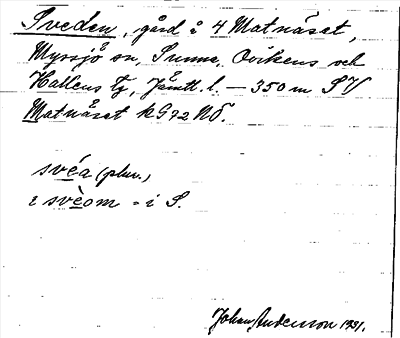 Sveden, gård å 4 Matnäset,
Myssjö sn, Sunne, Ovikens och
Hallens tg, Jämtl. l. – 350 m SV
Matnäset kG92NÖ.
svéa (plur.)
i svèom = i S.
Johan Anderson 1931.